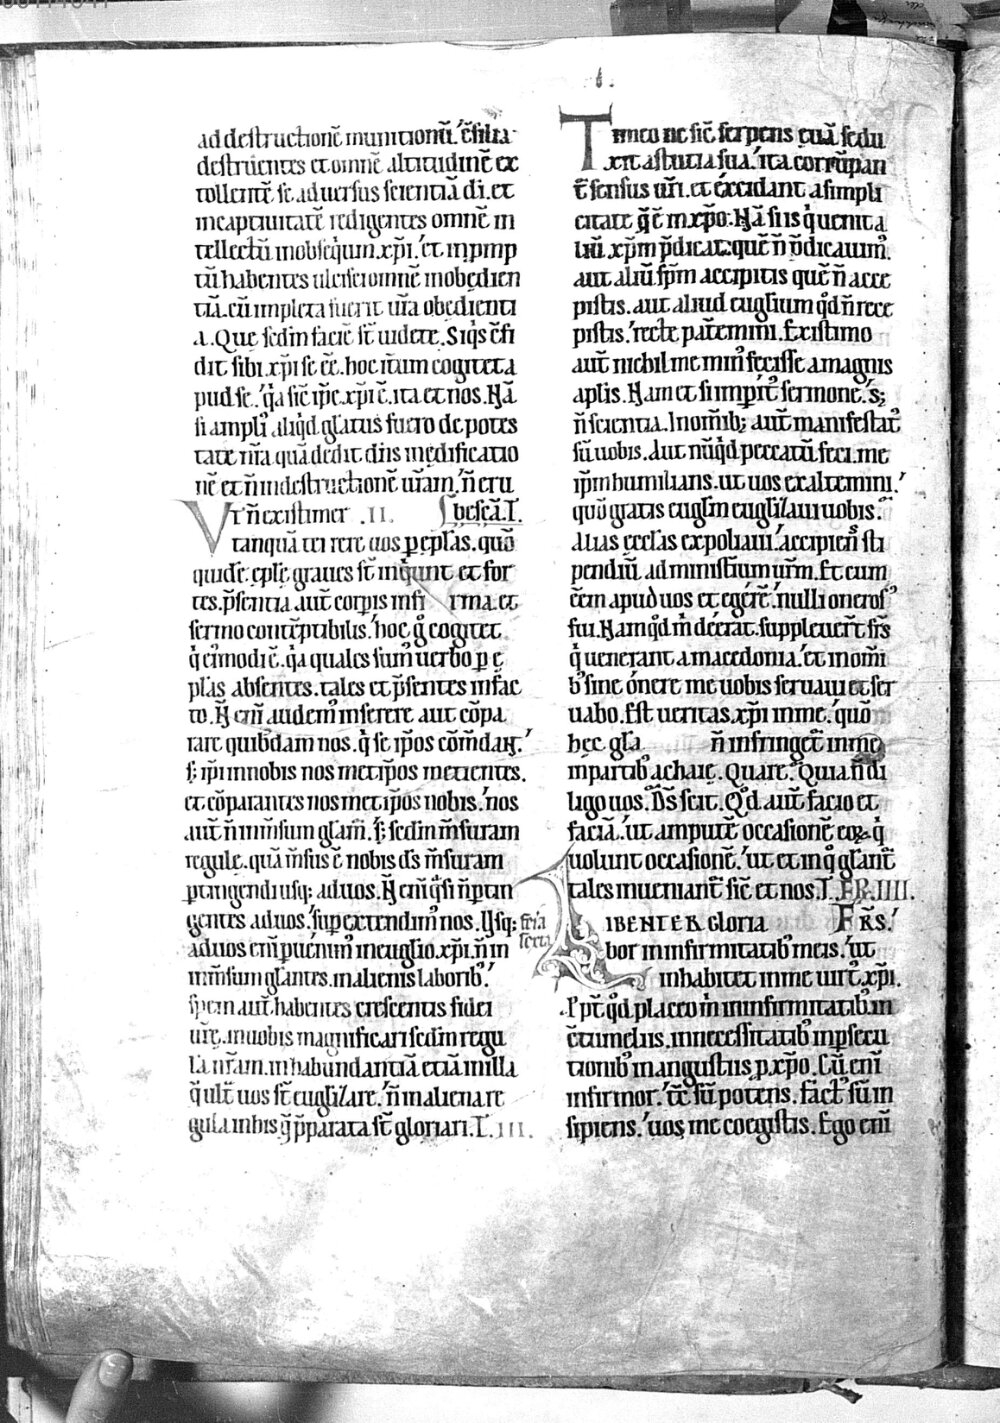 ad destructionē munitionū. c̄silia
destruentes et omnē altitudinē ex
tollentē se aduersus scientiā di. et
in captiuitatē redigentes omnē in
tellectū in obsequium xp̄i. et in pmp
tū habentes ulcisci omnē inobedien
tiā. cū impleta fuerit ur̄a obedienti
a. Que sc̄dm faciē st̄ uidete. Siq̓s c̄fi
dit sibi xp̄i se ēē. hoc itum cogitet a
pud se. q̓a sic̄ ip̄e xp̄i ē. ita et nos. Nā
si ampli᾽ aliq̓d gl̄atus fuero de potes
tate nr̄a quā dedit dn̄s in edificatio
nē et n̄ in destructionē ur̄am. n̄ eru
Vt n̄ existimer .II. besca. L.
tanquā terrere uos p ep̄las. quō
quidē. ep̄le graues st̄ inquiunt et for
tes. p̄sentia aut̄ corpis infirma. et
sermo contēptibilis. hoc g̊ cogitet
q̓ ei᾽modi ē. q̓a quales sum᾽ uerbo p e
plas absentes. tales et p̄sentes in fac
to. N̄ eni᷑ audem᾽ inserere aut cōpa
rare quibdam nos. q̓ se ip̄os cōmdant.
s; ip̄i in nobis nos met ip̄os metientes.
et cōparantes nos met ip̄os nobis. nos
aut̄ n̄ in m̄sum gl̄am᾽. s; sc̄dm m̄suram
regule. quā m̄sus ē nobis ds̄ m̄suram
ptingendi usq; ad uos. N̄ eni᷑ q̓si n̄ ptin
gentes ad uos. supextendim᾽ nos. Vsq;
ad uos eni᷑ puenim᾽ in euglio xp̄i. n̄ in
in m̄sum gl̄antes. in alienis laborib᾽.
spem aut̄ habentes crescentis fidei
ur̄e. in uobis magnificari sc̄dm regu
lā nr̄am. in habundantiā etiā in illa
q̄ ult̄ uos st̄ euglizare. n̄ in aliena re
gula in his q̄ p̄parata st̄ gloriari. L. III.
Timeo ne sic̄ serpens euā sedu
xit astutia sua. ita corrūpan
t̄ sensus ur̄i. et excidant a simpli
citate q̄ ē in xp̄o. Nā si is q̓ uenit a
liū xp̄m p̄dicat. quē n̄ p̄dicauim᾽.
aut aliū sp̄m accipitis quē n̄ acce
pistis. aut aliud euglium q̓d n̄ rece
pistis. recte pat̄emini. Existimo
aut̄ nichil me min᾽ fecisse a magnis
aplis. Nam et si imp̄it᾽ sermone. s;
n̄ scientia. In omīb; aut̄ manifestat᾽
sū uobis. Aut nūq̓d peccatū feci. me
ip̄m humilians. ut uos exaltemini.
quō gratis euglm euglizaui uobis.
Alias eccl̄as expoliaui. accipien᾽ sti
pendiū ad ministiū ur̄m. Et cum
eēm apud uos et egerē. nulli oneros᾽
fui. Nam q̓d m̄ deerat. suppleuer̄t fr̄s
q̓ uenerant a macedonia. et in omī
b᾽ sine onere me uobis seruaui et ser
uabo. Est ueritas xp̄i in me. quō
hec gl̄a n̄ infringet̄ in me
in partib᾽ achaie. Quare. Quia n̄ di
ligo uos. Ds̄ scit. Q̓d aut̄ facio et
faciā. ut amputē occasionē eoꝝ q̓
uolunt occasionē. ut et in q᾽ gl̄ant̄
tales inueniant̄ sic̄ et nos. L. FR. IIII.
feria
sexta
LIBENTER gloria FRS̄.
bor in infirmitatib᾽ meis. ut
inhabitet in me uirt᾽ xp̄i.
Ppt̄ q̓d placeo m̄ in infirmitatib᾽. in
c̄tumeliis. in necessitatib᾽ in psecu
tionib᾽ in angustiis p xp̄o. Cū eni᷑
infirmor. tc̄ sū potens. fact᾽ sūm in
sipiens. uos me coegistis. Ego eni᷑